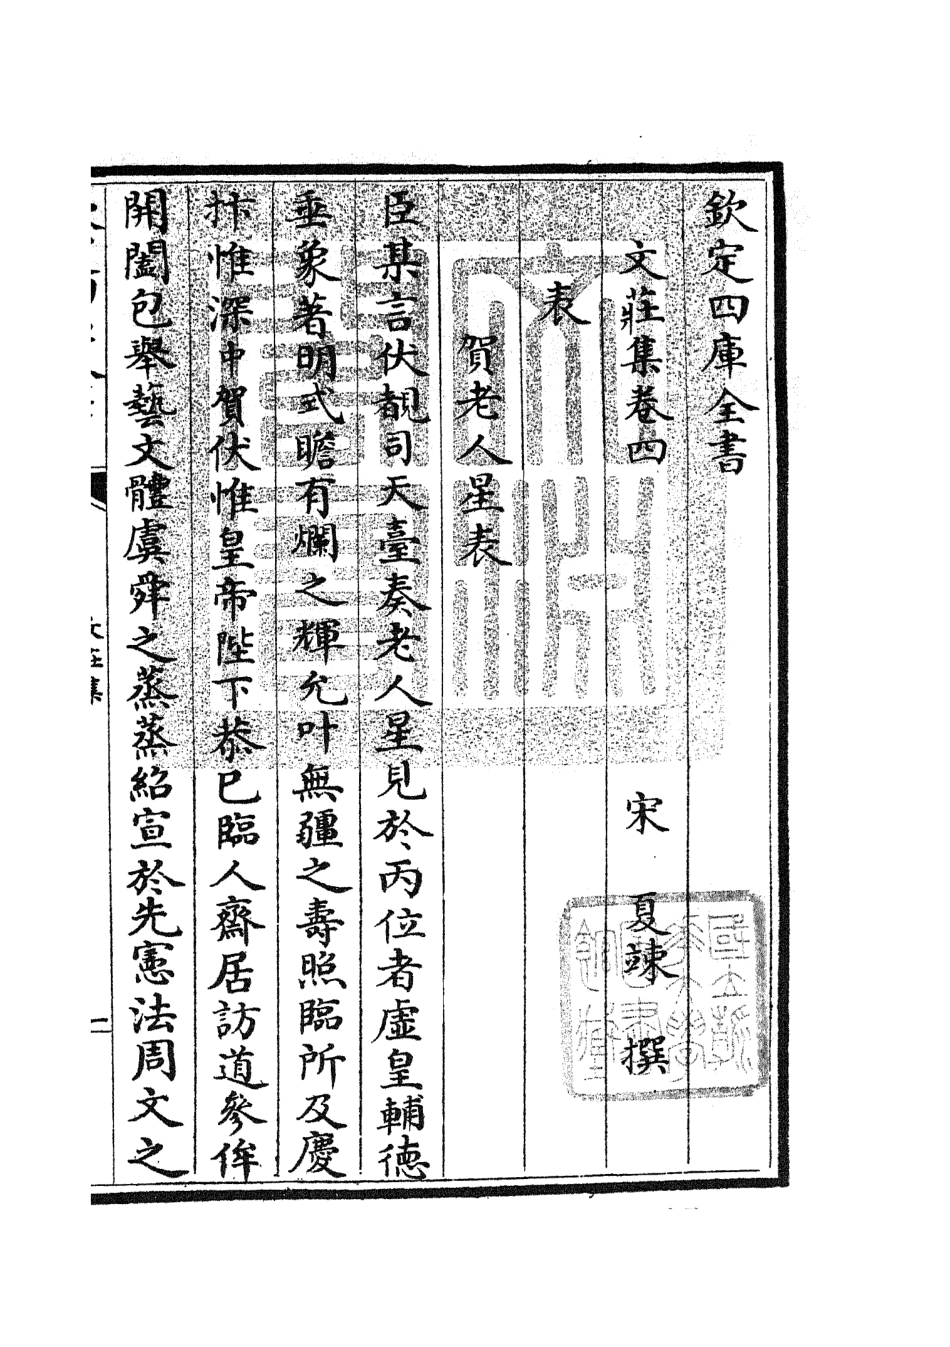 欽定四庫全書
文莊集卷四
宋 夏竦 撰
表
賀老人星表
臣某言伏覩司天臺奏老人星見於丙位者虛皇輔德
垂象著明式瞻有爛之輝允叶無疆之壽照臨所及慶
抃惟深中賀伏惟皇帝陛下恭已臨人齋居訪道參侔
開闔包舉藝文體虞舜之蒸蒸紹宣於先憲法周文之
文莊集
一